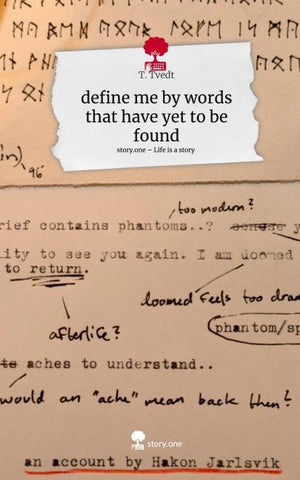 T. Tvedt
define me by words
that have yet to be
found
story.one – Life is a story
in)
96'
too modern?
rief contains phantoms..? sense y
ity to see you again. I am doomed
to return.
loomed feels too dra
afterlife?
phantom/sp
te aches to understand..
would an "ache" mean back then?
story.one
an account by Hakon Jarlsvik